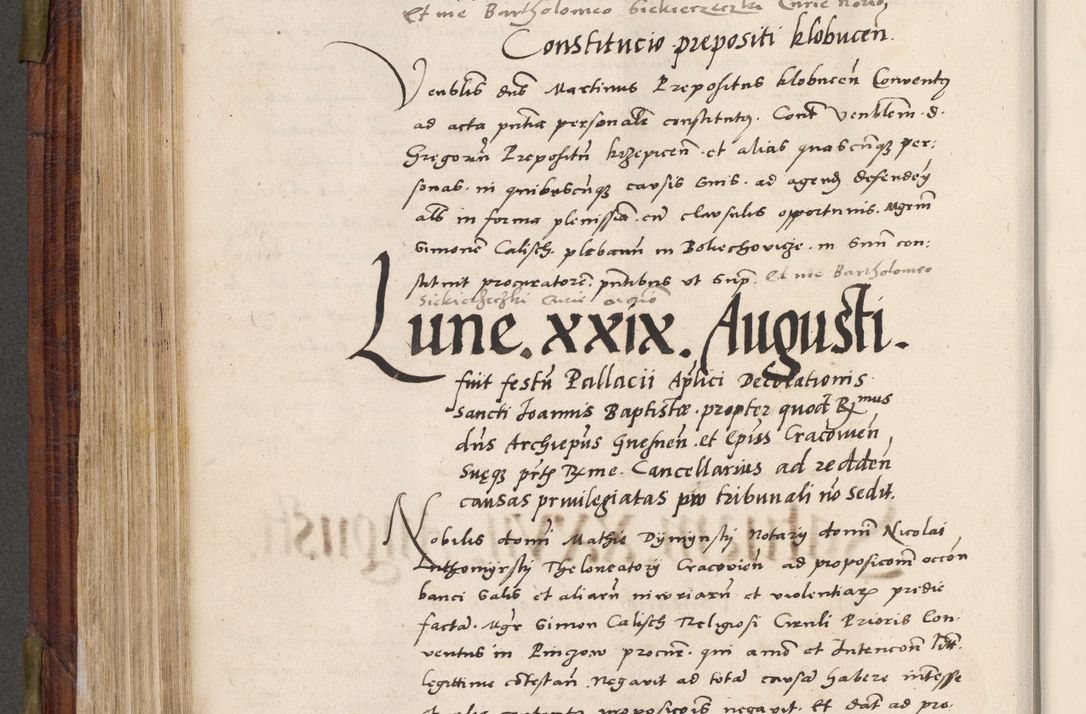 Et me Bartholomeo Siekierzeczki Curie Notio,
Constitucio prepositi klobucen.
Venblis dns Martinus Prepositus klobucen Conventq
ad acta pntia personalr constitutq. Cont venblem. d.
Gregoriu Prepositu krzepicen. et alias quascunqz per:
sonas. in quibuscunqz causis suis. ad agend defenden
als in forma plenissia. cu clausulis opportunis. Mgrm
Simone Calisch. plebanu in Boliechovicze. in suu con:
stituit procuratore: pntibus ut sup. Et me Bartholomeo
Siekierzeczki Curie
Lune. xxix. Augusti.
fuit festu Pallacii Aplici Decolationis
Sancti Joannis Baptistae. propter quod Rmus
dns Archiepus Gnesnen. et Epus Cracovien
Suęqz Rme. Cancellarius ad redden
causas privilegiatas pro tribunali no sedit.
Nobilis domi Mathie Dymynsky Notary domi Nicolai
Theloneatory Cracovien ad proposicom
banci Salis et aliaru iniuriaru et violentiarz predie
facta. Mgr Simon Calisch Religiosi Ciruli Prioris Con
ventus in Pinczow procur. qui amo et Intencon litt.
legittime cotestan. Negavit ad tota causa habere interesse
proposicois negavit. Et dat ad pro.